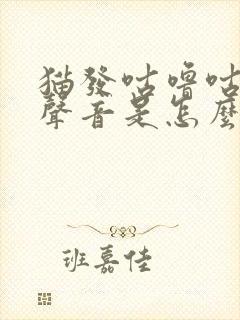 猫發咕嚕咕
聲音是怎麼
班嘉佳